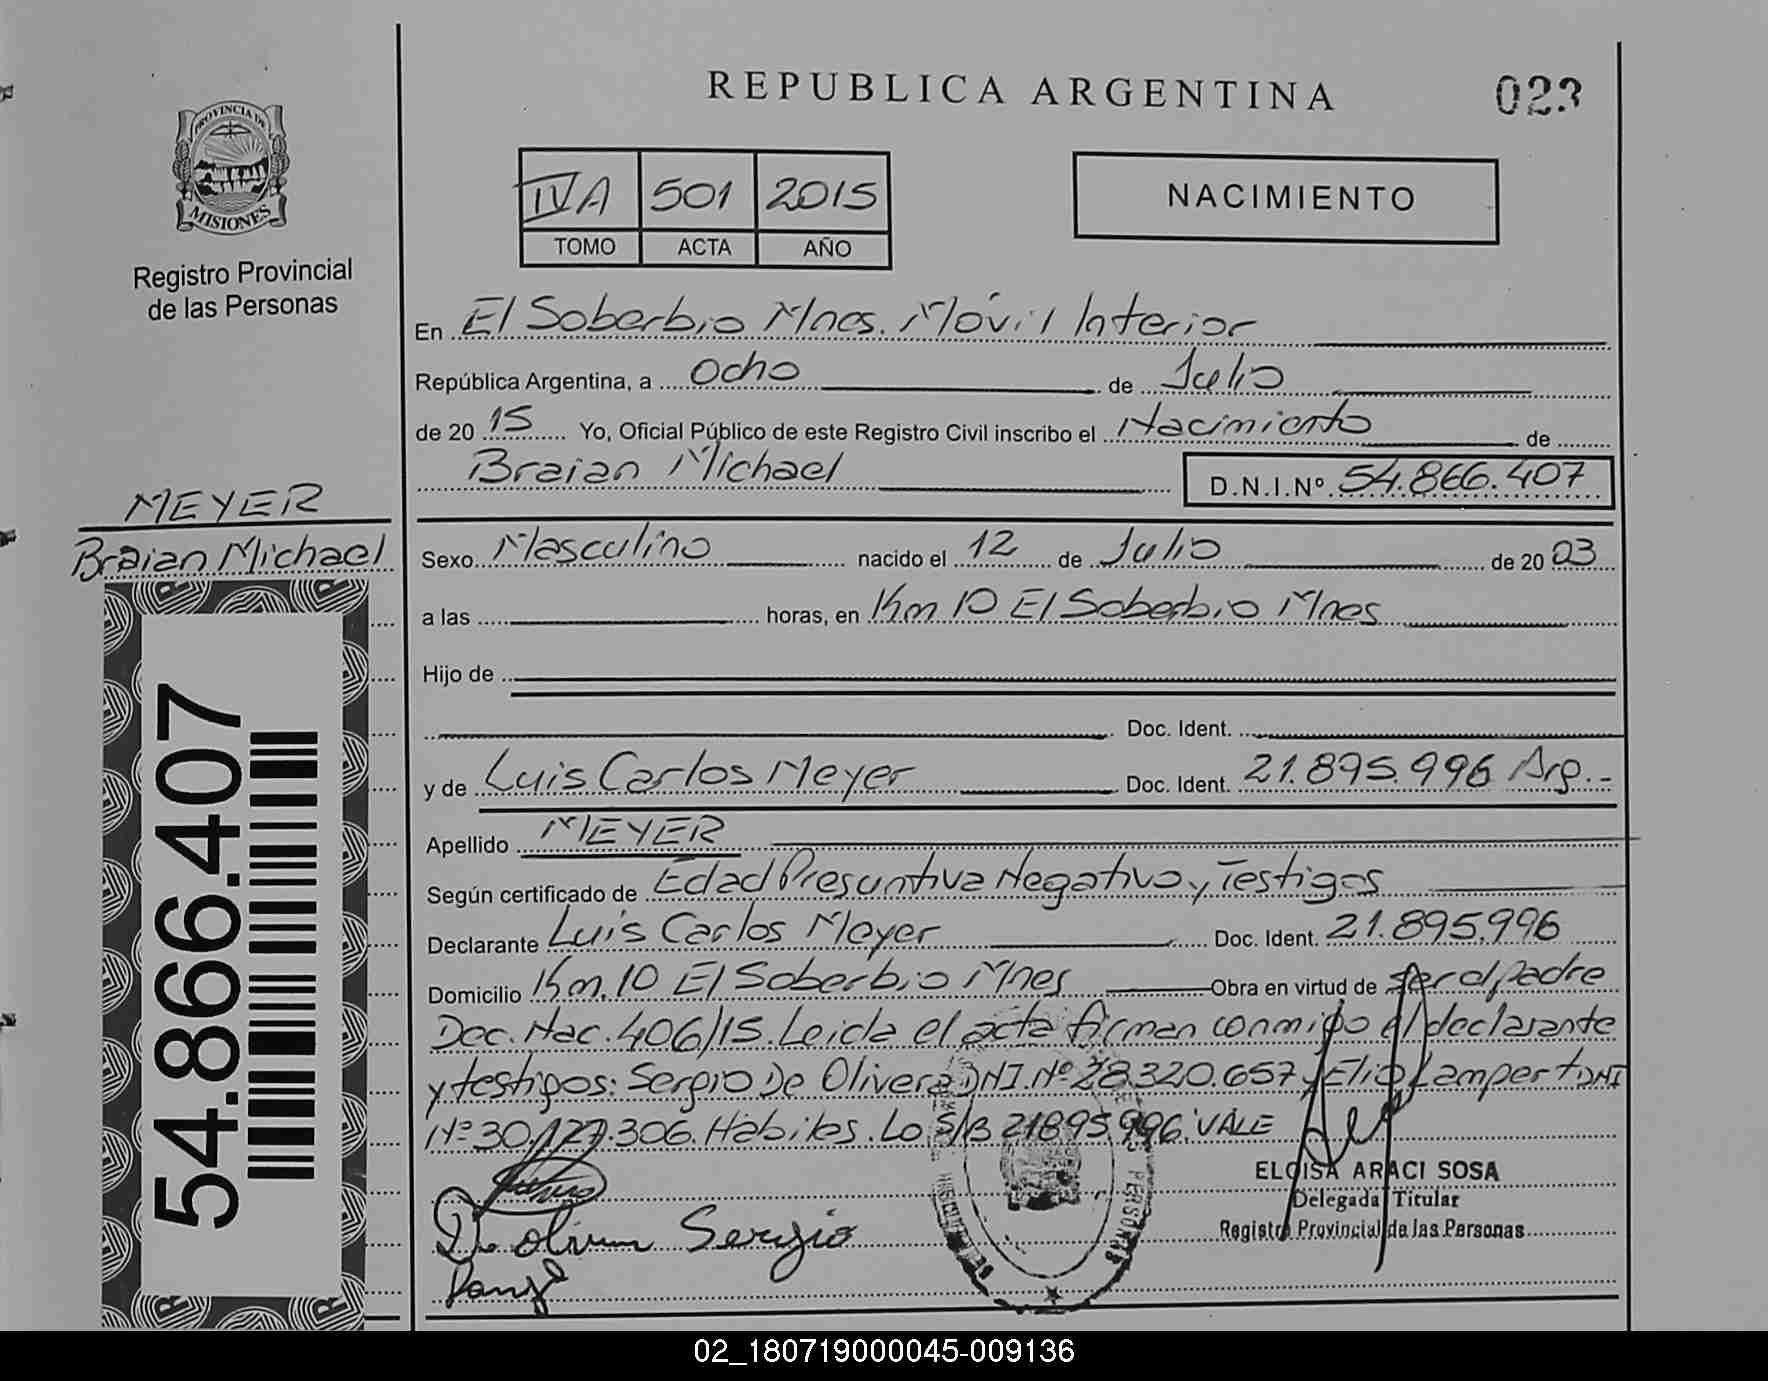 REPUBLICA ARGENTINA
023
PROVINCIA DE
MISIONES
Registro Provincial
de las Personas
IVA 501 2015
TOMO ACTA AÑO
NACIMIENTO
En El Soberbio Mnes. Móvil Interior
República Argentina, a Ocho de Julio
de 2015 Yo, Oficial Público de este Registro Civil inscribo el Nacimiento de
Braian Michael D.N.I.Nº 54.866.407
MEYER
Braian Michael
54.866.407
Sexo Masculino nacido el 12 de Julio de 2003
a las horas, en Km 10 El Soberbio Mnes
Hijo de
Doc. Ident.
y de Luis Carlos Meyer Doc. Ident. 21.895.996 Arg.-
Apellido MEYER
Según certificado de Edad Presuntiva Negativo y Testigos
Declarante Luis Carlos Meyer Doc. Ident. 21.895.996
Domicilio Km. 10 El Soberbio Mnes Obra en virtud de ser el padre
Dec. Nac. 406/15. Leida el acta firman conmigo el declarante
y testigos: Sergio De Olivera DNI. Nº 28.320.657 y Elio Lampert DNI
Nº 30.127.306. Hábiles. Lo S/B 21895996. VALE
ELOISA ARACI SOSA
Delegada Titular
Registro Provincial de las Personas
Sergio
PERSONAS
02_180719000045-009136